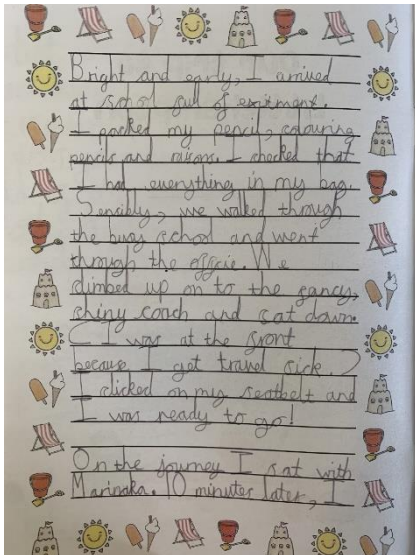 Bright and early, I arrived
at school full of exciment.
I packed my pencil, colouring
pencils and I checked that
I had everything in my bag.
Sencibly, we walked through
the busy school and went
through the officie. We
climbed up on to the fancy,
shiny coach and sat down.
(I was at the front
because I get travel sick.)
I clicked on my seatbelt and
I was ready to go!
On the journey I sat with
Marinaka. 10 minutes later, I